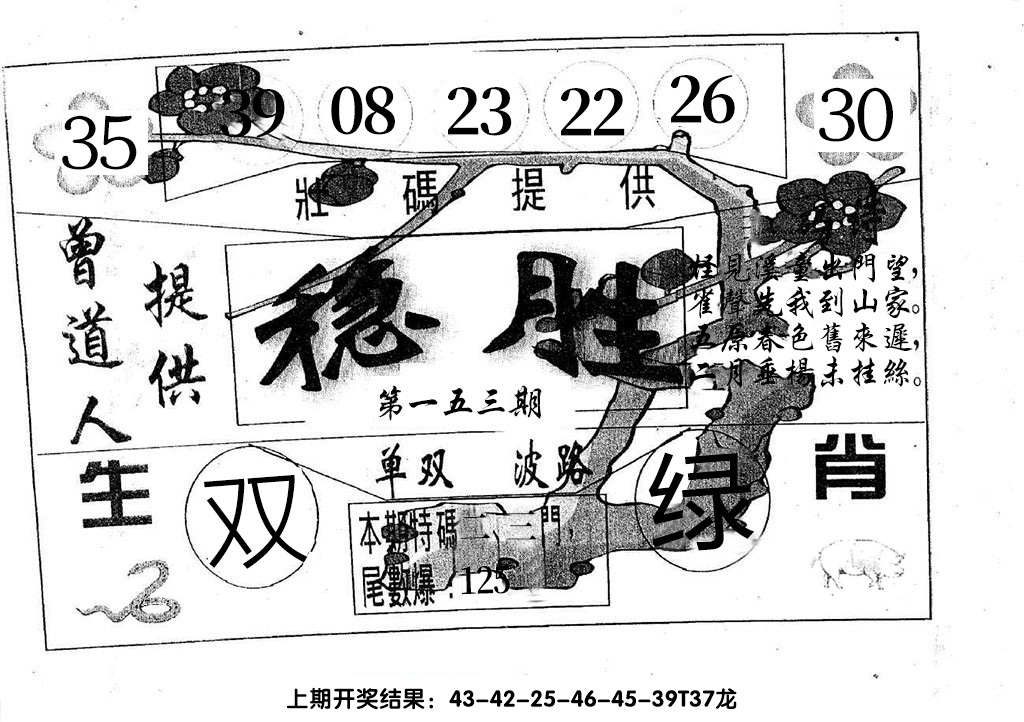 35 39 08 23 22 26 30
壯碼提供
曾道人
提供
稳胜
第一五三期
怪見溪童出門望，
雀聲先我到山家。
五原春色舊來遲，
二月垂楊未挂絲。
单双 波路
生肖
双
绿
本期特碼二、三門，
尾數爆：125
上期开奖结果：43-42-25-46-45-39T37龙